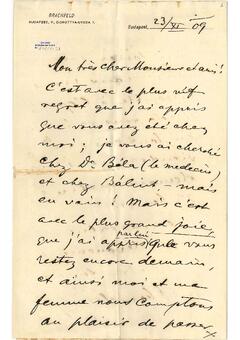 BRACHFELD
BUDAPEST, V., DOROTTYA-UTCZA 1.
Budapest, 23/XI 09
Mon très cher Monsieur et ami!
C'est avec le plus vif
regret que j'ai appris
que vous avez été chez
moi; je vous ai cherché
chez Dr Béla (le médecin)
et chez Bálint - mais
en vain! Mais c'est
avec le plus grand joie,
que j'ai appris par lui que vous
restez encore demain,
et ainsi moi et ma
femme nous comptons
au plaisir de passer